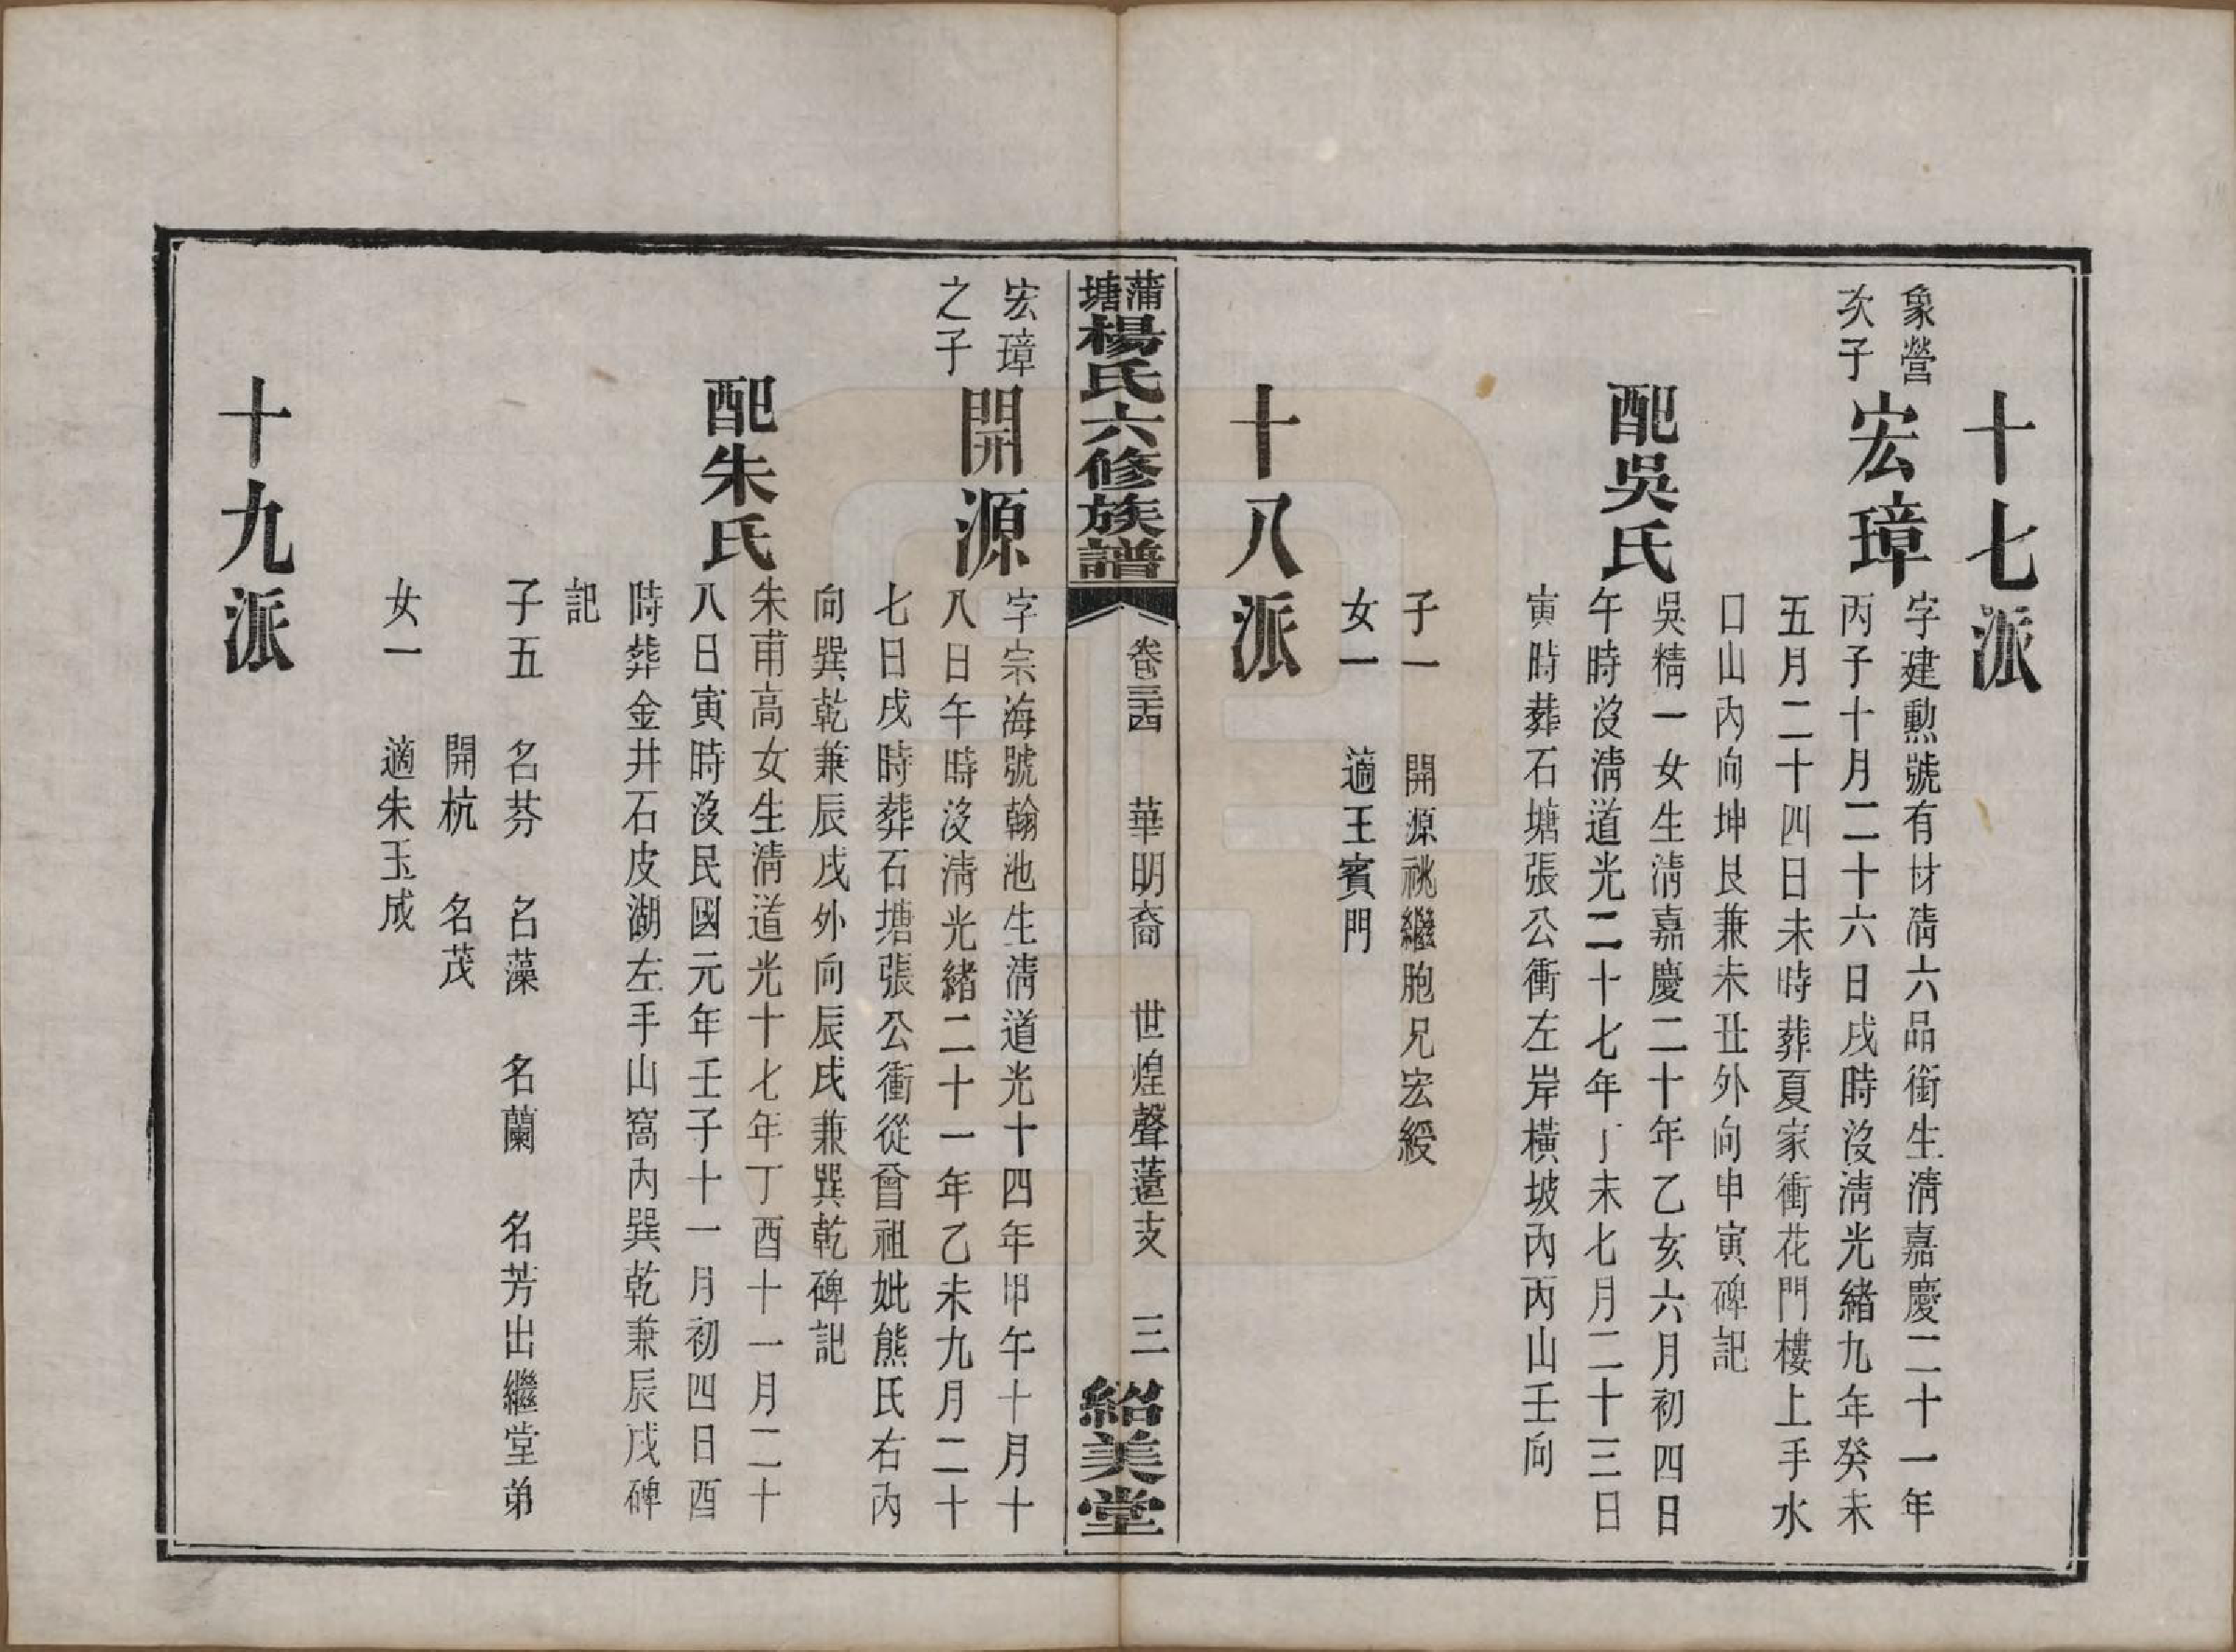 十七派
象營
次子
宏璋
字建勲號有材清六品銜生淸嘉慶二十一年
丙子十月二十六日戌時沒淸光緒九年癸未
五月二十四日未時葬夏家衝花門樓上手水
口山內向坤艮兼未丑外向申寅碑記
配吳氏
吳精一女生淸嘉慶二十年乙亥六月初四日
午時沒淸道光二十七年丁未七月二十三日
寅時葬石塘張公衝左岸橫坡內丙山壬向
子一 開源祧繼胞兄宏綬
女一 適王賓門
十八派
蒲塘楊氏六修族譜
卷三十四 華明裔 世煌聲薳支 三
紹美堂
宏璋
之子
開源
字宗海號翰池生淸道光十四年甲午十月十
八日午時沒淸光緒二十一年乙未九月二十
七日戌時葬石塘張公衝從曾祖妣熊氏右內
向巽乾兼辰戌外向辰戌兼巽乾碑記
配朱氏
朱甫高女生淸道光十七年丁酉十一月二十
八日寅時沒民國元年壬子十一月初四日酉
時葬金井石皮湖左手山窩內巽乾兼辰戌碑
記
子五 名芬 名藻 名蘭 名芳出繼堂弟
開杭 名茂
女一 適朱玉成
十九派